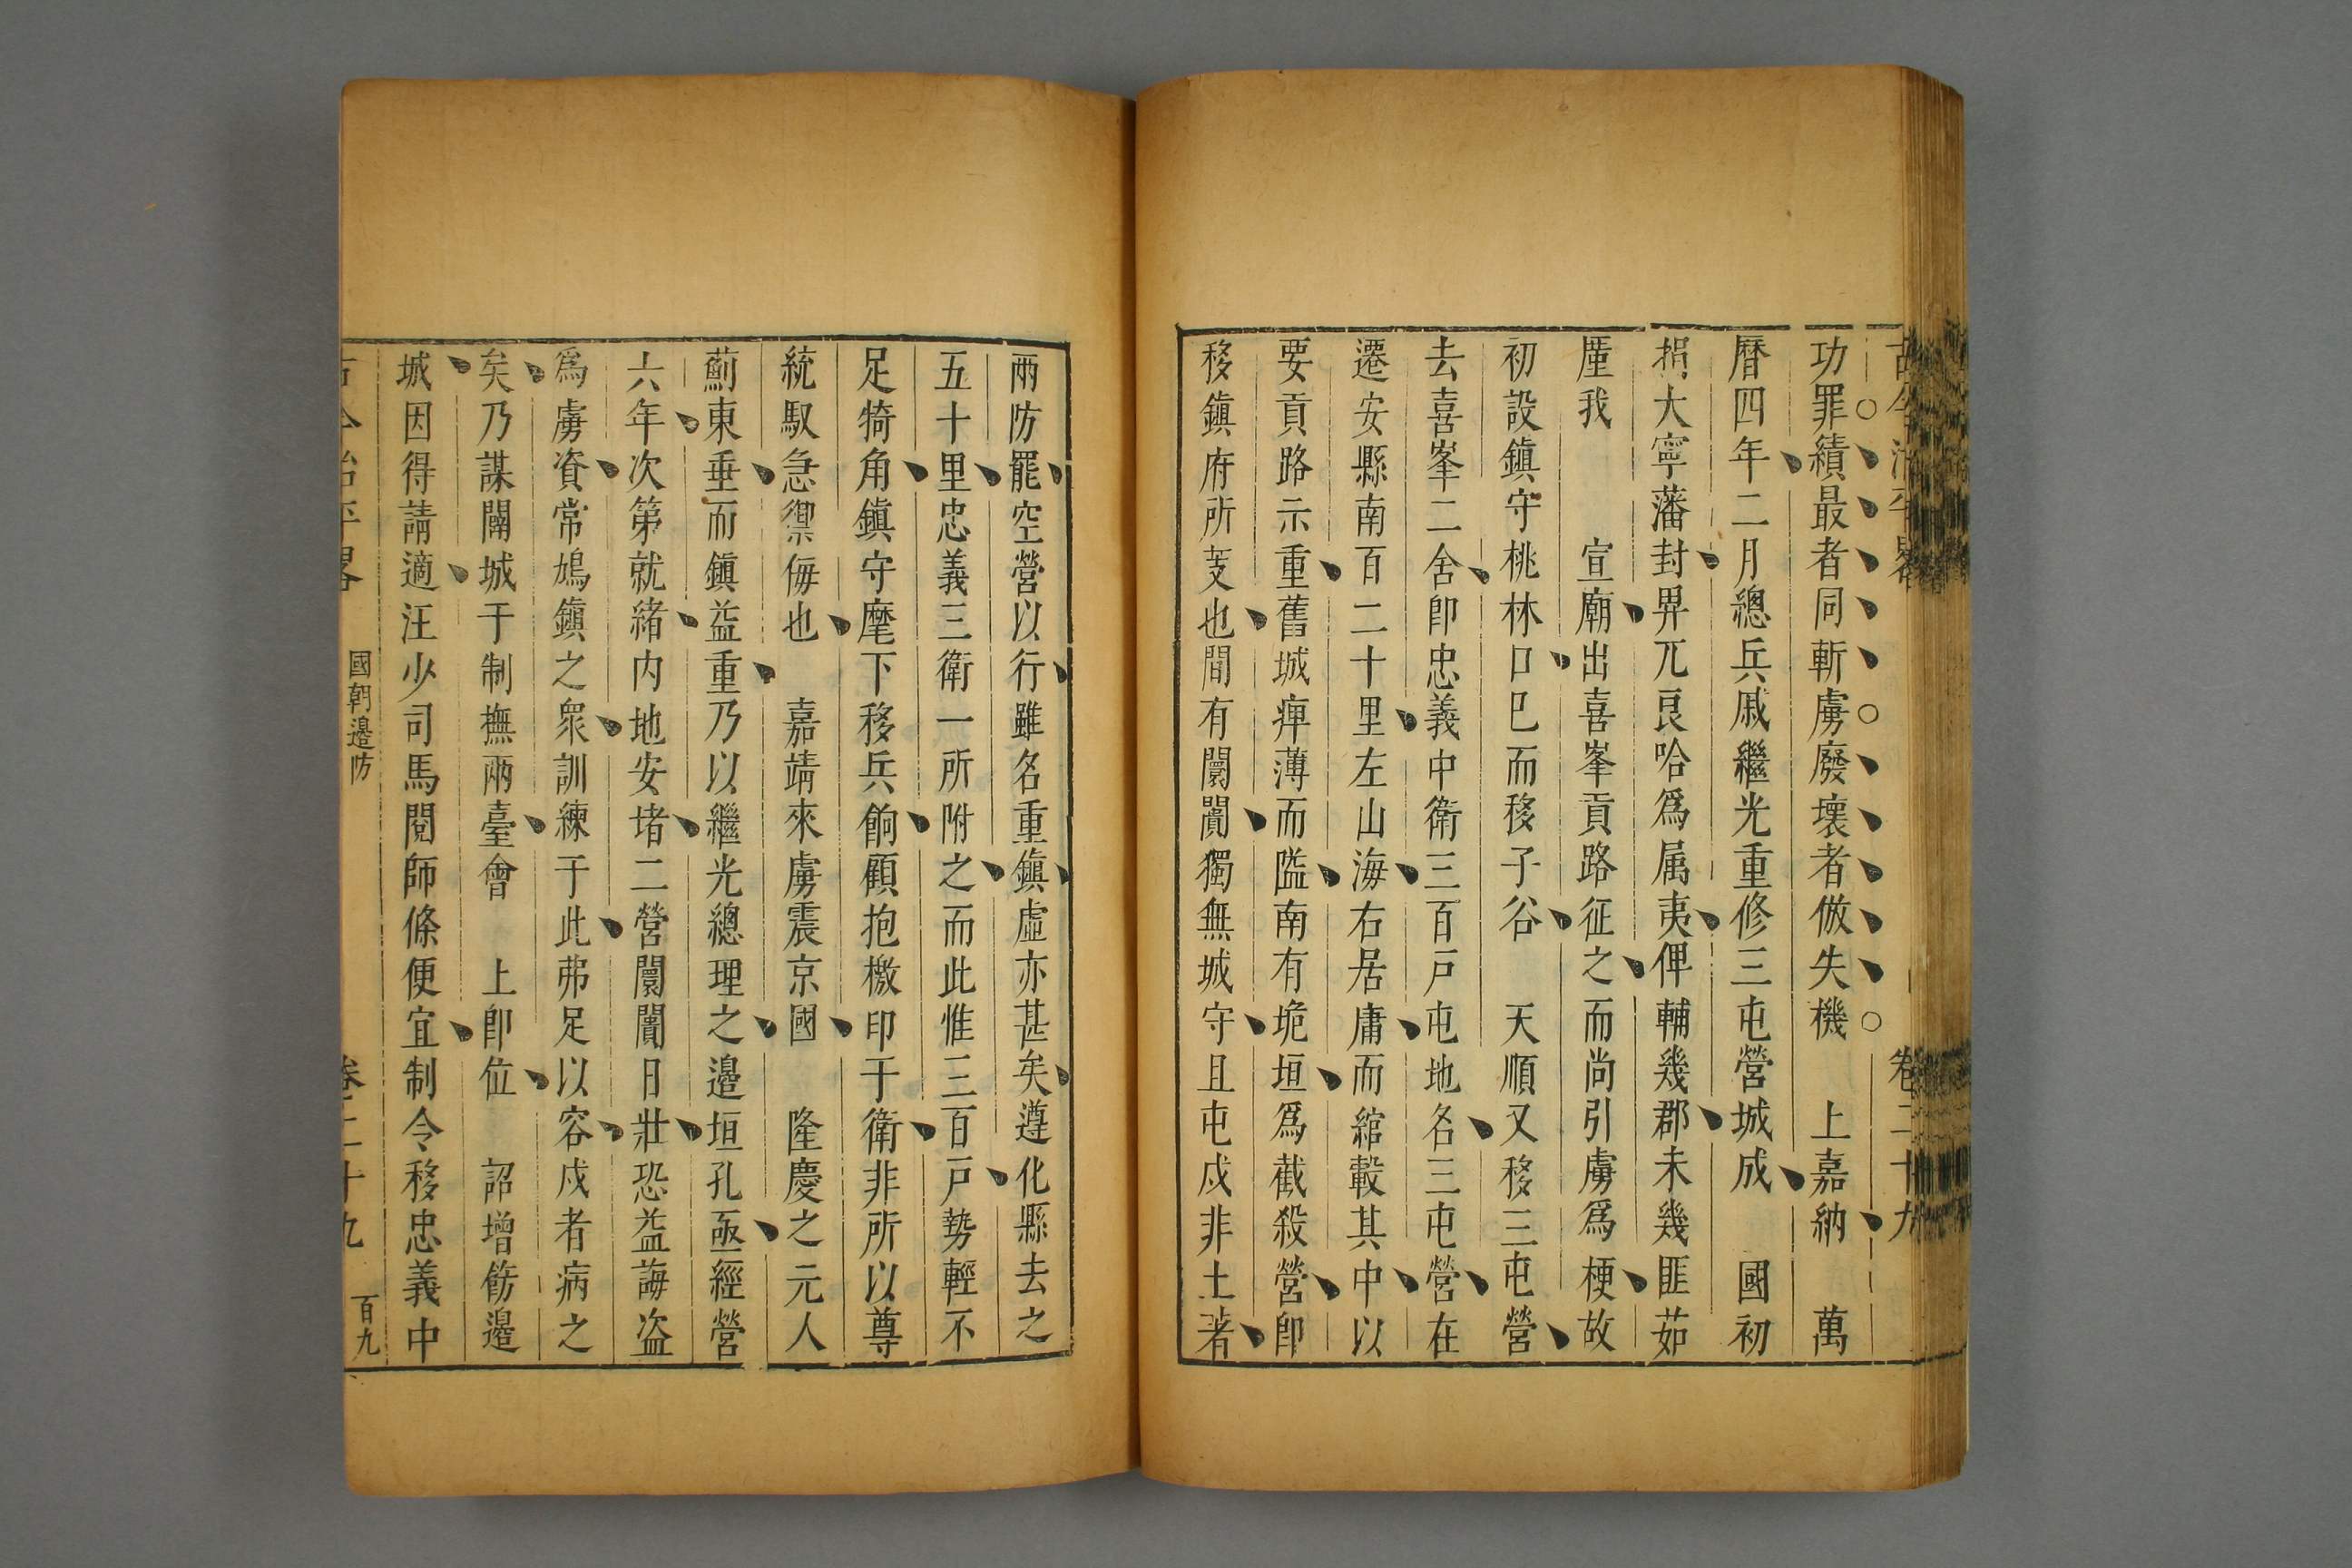 古今治平畧 卷二十九
功罪績最者同斬虜廢壞者倣失機 上嘉納 萬
曆四年二月總兵戚繼光重修三屯營城成 國初
捐大寧藩封畀兀良哈爲属夷俾輔幾郡未幾匪茹
厪我 宣廟出喜峯貢路征之而尚引虜爲梗故
初設鎮守桃林口已而移子谷 天順又移三屯營
去喜峯二舍卽忠義中衛三百戸屯地名三屯營在
遷安縣南百二十里左山海右居庸而綰轂其中以
要貢路示重舊城痺薄而隘南有垝垣爲截殺營卽
移鎮府所芰也間有闤闠獨無城守且屯戍非土著
兩防罷空營以行雖名重鎮虛亦甚矣遵化縣去之
五十里忠義三衛一所附之而此惟三百戸勢輕不
足犄角鎮守麾下移兵餉顧抱檄印于衛非所以尊
統馭急禦侮也 嘉靖來虜震京國 隆慶之元人
薊東垂而鎮益重乃以繼光總理之邉垣孔亟經營
六年次第就緒内地安堵二營闤闠日壯恐益誨盗
爲虜資常鳩鎮之衆訓練于此弗足以容戍者病之
矣乃謀闢城于制撫兩臺會 上卽位 詔增餙邉
城因得請適汪少司馬閱師條便宜制令移忠義中
古今治平畧 國朝邉防 卷二十九 百九